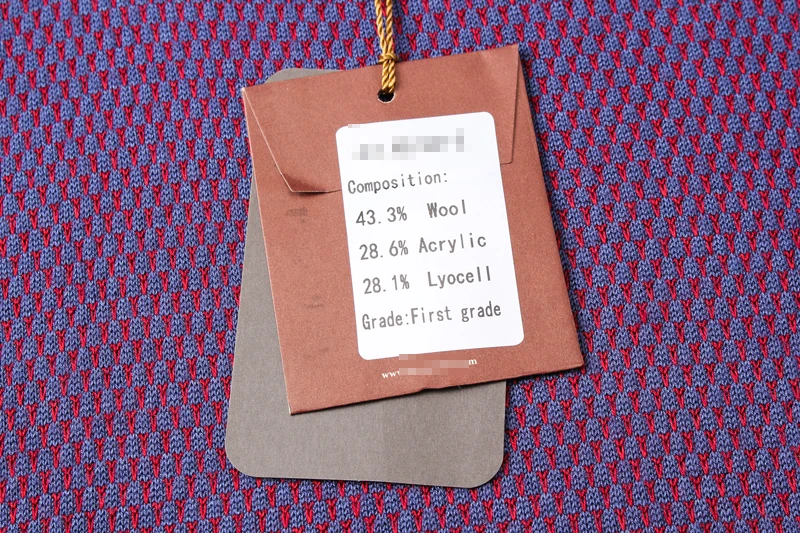 Composition:
43.3% Wool
28.6% Acrylic
28.1% Lyocell
Grade:First grade